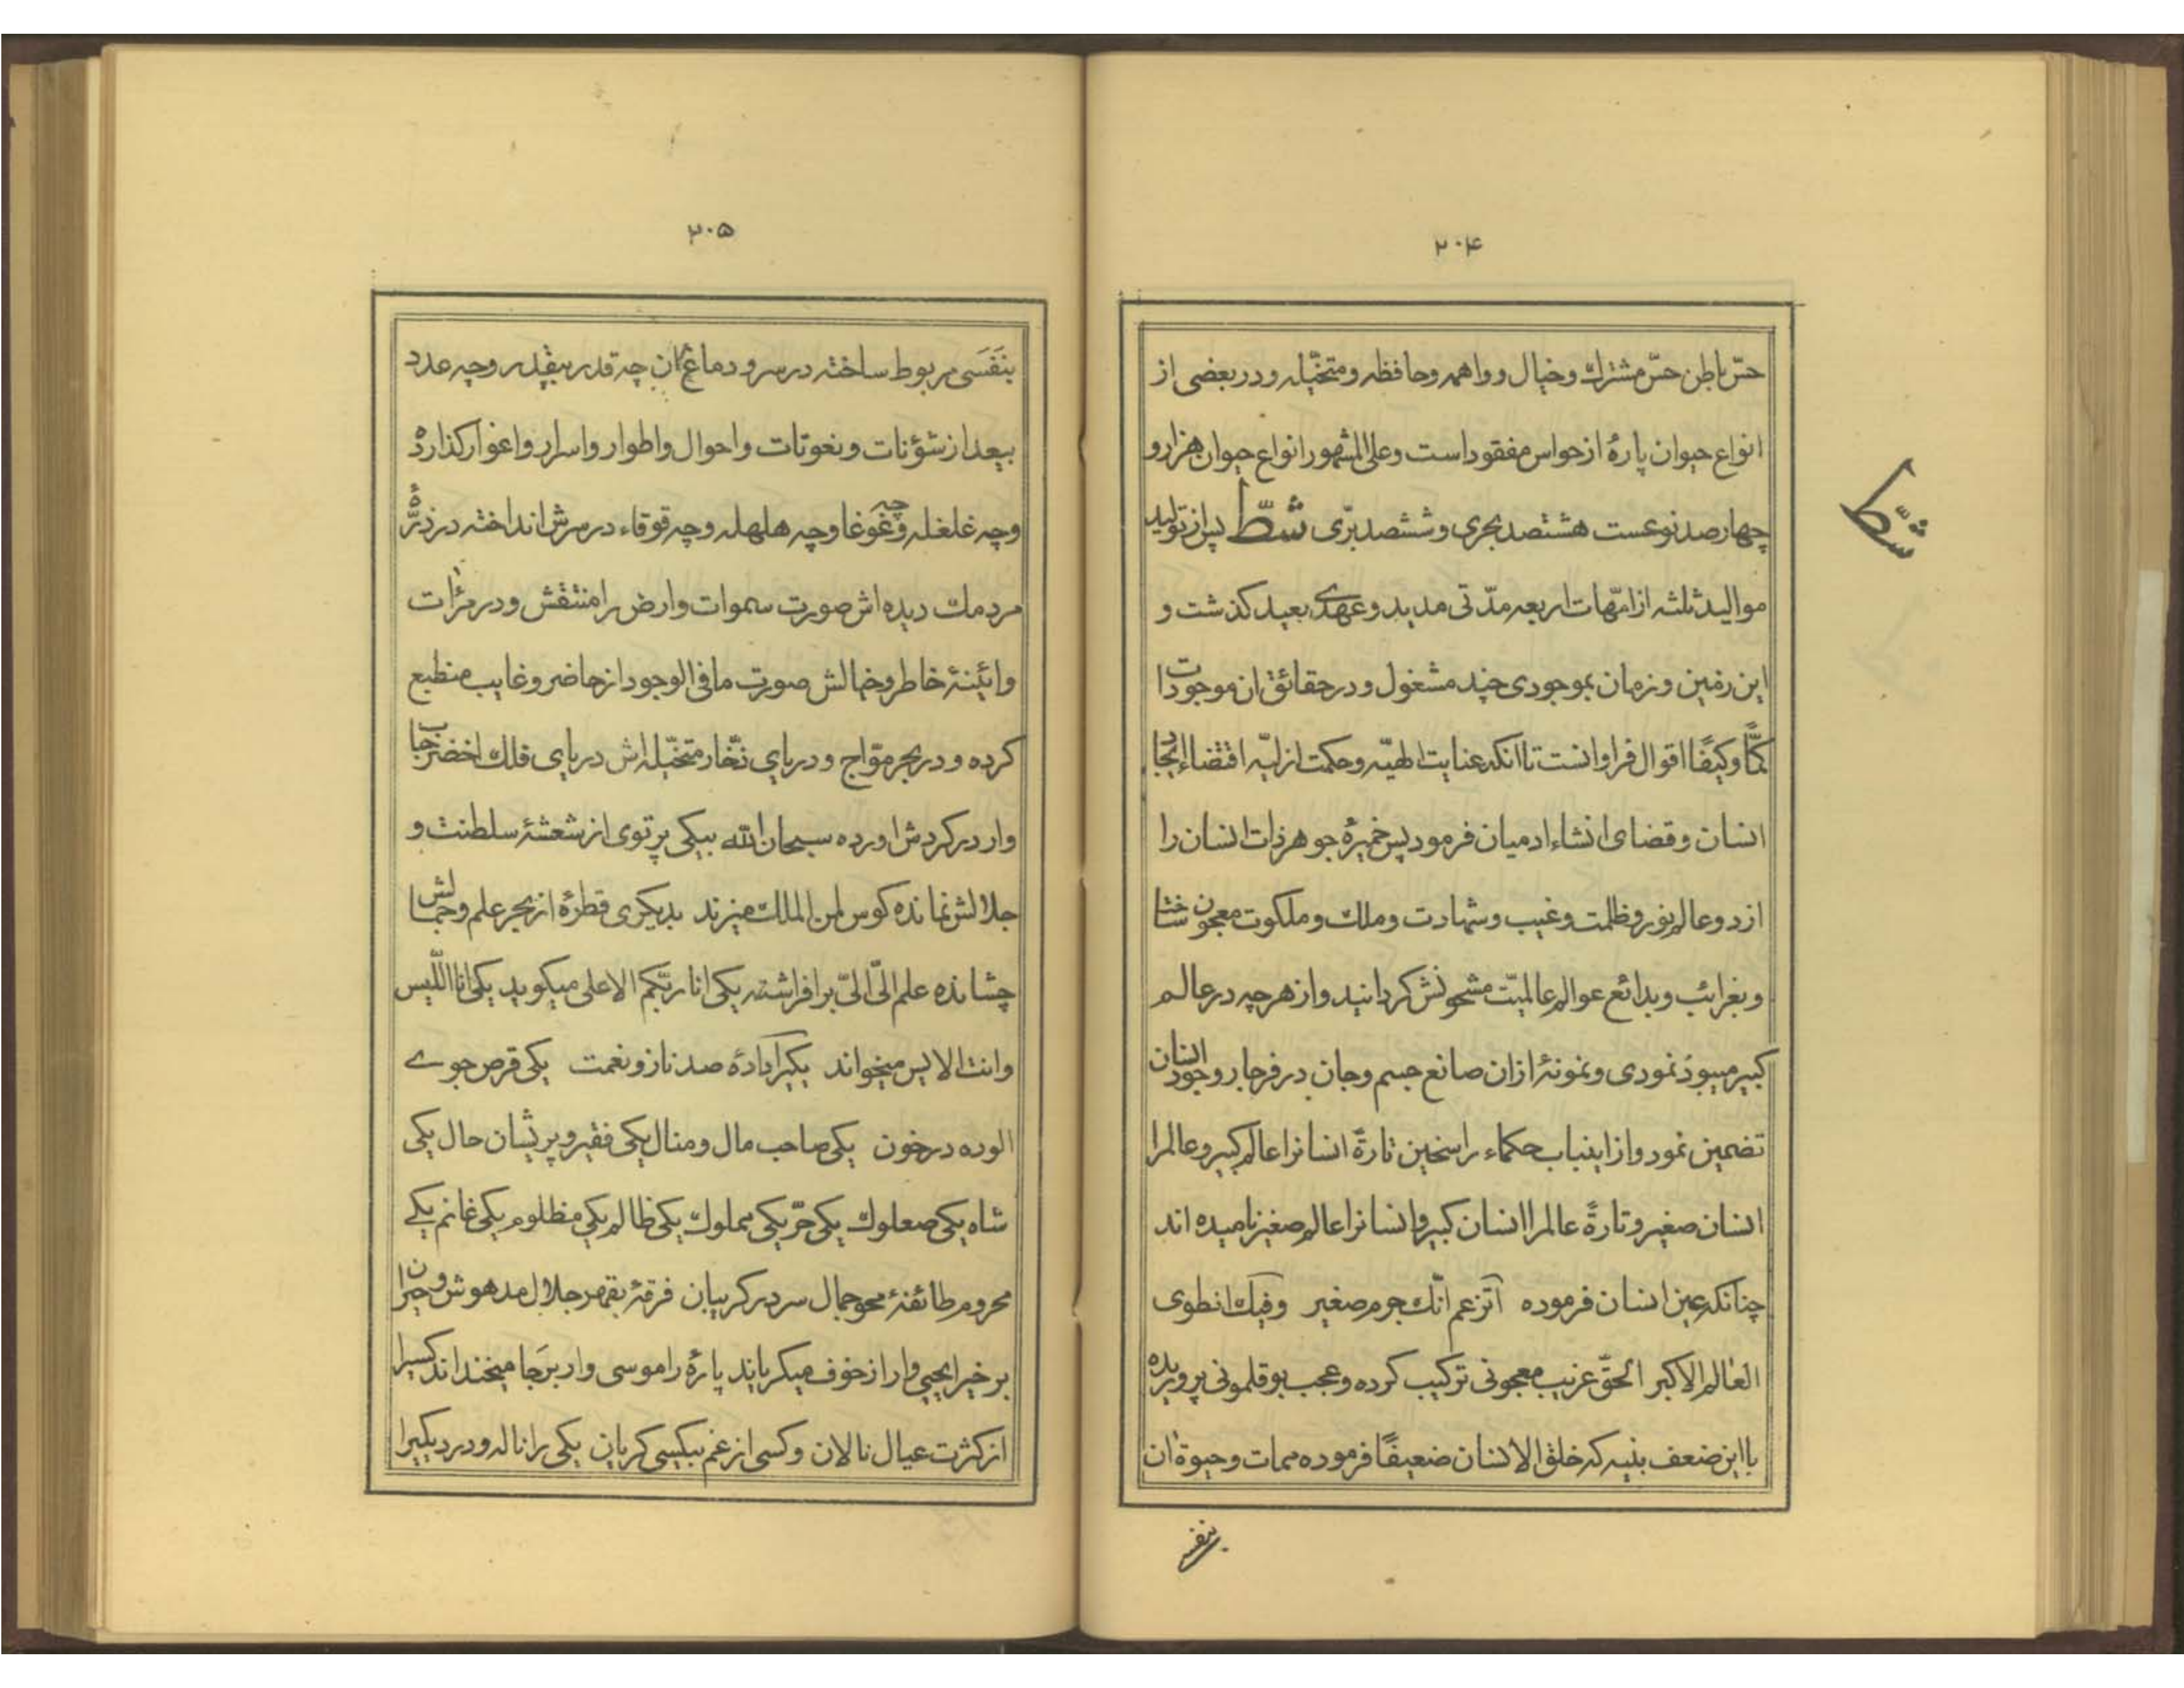 ۲۰۴
حسّ باطن حسّ مشترك و خیال و واهمه و حافظه و متخیّله و در بعضی از
انواع حیوان پارهٔ از حواس مفقود است و علی المشهور انواع حیوان هزار و
چهار صد نوعست هشتصد بحری و ششصد برّی شطّ پس از تولید
شطّ
موالید ثلثه از امّهات اربعه مدّتی مدید و عهدی بعید کذشت و
این زمین و زمان بموجودی چند مشغول و در حقائق ان موجودات
کمًّا و کیفًا اقوال فراوانست تا انکه عنایت الهیّه و حکمت ازلیّه اقتضاء ایجاد
انسان و قضای انشاء ادمیان فرمود پس خمیرهٔ جوهر ذات انسان را
از دو عالم نور و ظلمت و غیب و شهادت و ملك و ملکوت معجون ساخت
و بغرائب و بدائع عوالم عالمیّت مشحونش کردانید و از هر چه در عالم
کبیر میبود نمودی و نمونهٔ ازان صانع جسم و جان در فرجار وجود انسان
تضمین نمود و از اینباب حکماء راسخین تارةً انسانرا عالم کبیر و عالمرا
انسان صغیر و تارةً عالمرا انسان کبیر و انسانرا عالم صغیر نامیده اند
چنانکه عین انسان فرموده اتزعم انّك جرم صغیر وفیك انطوی
العالم الاکبر الحقّ غریب معجونی ترکیب کرده و عجب بوقلمونی پروریده
با این ضعف بنیه که خلق الانسان ضعیفًا فرموده ممات و حیوة ان
بنفسی
۲۰۵
بنَفَسَی مربوط ساخته در سر و دماغ ان چه قدر بیقدر و چه عدد
بیعد از شؤنات و نعوتات و احوال و اطوار و اسرار و اغوار کذارده
و چه غلغله و چه غوغا و چه هلهله و چه قوقاء در سرش انداخته در ذرّهٔ
مردمك دیده اش صورت سموات و ارض را منتقش و در مرٰات
و ائینهٔ خاطر و خیالش صورت ما فی الوجود از حاضر و غایب منطبع
کرده و در بحر موّاج و دریای زخّار متخیّله اش دریای فلك اخضر حباب
وار در کردش اورده سبحان الله بیکی پرتوی از شعشعهٔ سلطنت و
جلالش نمانده کوس لمن الملك میزند بدیکری قطرهٔ از بحر علم و جمالش
چشانده علم الیّ الیّ برافراشته یکی انا ربّکم الاعلی میکوید یکی انا اللّیس
و انت الالیس میخواند یکیرا دادهٔ صد ناز و نعمت یکی قرص جوے
الوده در خون یکی صاحب مال و منال یکی فقیر و پریشان حال یکی
شاه یکی صعلوك یکی حرّ یکی مملوك یکی ظالم یکی مظلوم یکی غانم یکے
محروم طائفهٔ محو جمال سر در کریبان فرقهٔ بقهر جلال مدهوش و حیران
برخیرا یحیی وار از خوف میکریاند پارهٔ را موسی وار برَجا میخنداند کسیرا
از کثرت عیال نالان و کسی از غم بیکسی کریان یکی را ناله و درد یکیرا